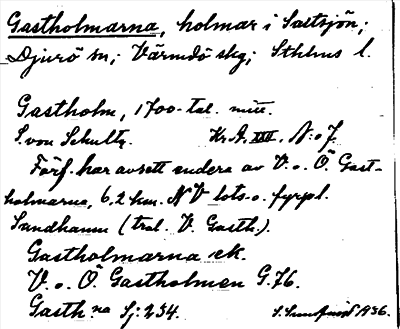 Gastholmarna, holmar i Saltsjön;
Djurö sn; Värmdö skg; Sthlms l.
Gastholm, 1700-tal. mitt.
S. von Schultz. Kr. A. XIII. N:o 7.
Förf. har avsett endera av V. o. Ö Gast-
holmarna, 6,2 km. NV lots- o. fyrpl.
Sandhamn (tral. V. Gasth.).
Gastholmarna ek.
V. o. Ö Gastholmen G.76.
Gasth:na Sj: 234. 1936.